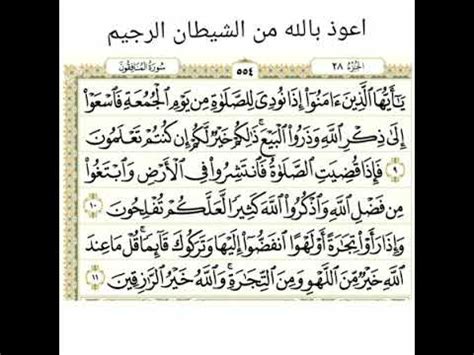 اعوذ بالله من الشيطان الرجيم
سُورَةُ المُنَافِقُونَ ٥٥٤ الجُزْءُ ٢٨
يَٰٓأَيُّهَا ٱلَّذِينَ ءَامَنُوٓا۟ إِذَا نُودِىَ لِلصَّلَوٰةِ مِن يَوْمِ ٱلْجُمُعَةِ فَٱسْعَوْا۟
إِلَىٰ ذِكْرِ ٱللَّهِ وَذَرُوا۟ ٱلْبَيْعَ ۚ ذَٰلِكُمْ خَيْرٌ لَّكُمْ إِن كُنتُمْ تَعْلَمُونَ
٩ فَإِذَا قُضِيَتِ ٱلصَّلَوٰةُ فَٱنتَشِرُوا۟ فِى ٱلْأَرْضِ وَٱبْتَغُوا۟
مِن فَضْلِ ٱللَّهِ وَٱذْكُرُوا۟ ٱللَّهَ كَثِيرًا لَّعَلَّكُمْ تُفْلِحُونَ ١٠
وَإِذَا رَأَوْا۟ تِجَٰرَةً أَوْ لَهْوًا ٱنفَضُّوٓا۟ إِلَيْهَا وَتَرَكُوكَ قَآئِمًا ۚ قُلْ مَا عِندَ
ٱللَّهِ خَيْرٌ مِّنَ ٱللَّهْوِ وَمِنَ ٱلتِّجَٰرَةِ ۚ وَٱللَّهُ خَيْرُ ٱلرَّٰزِقِينَ ١١